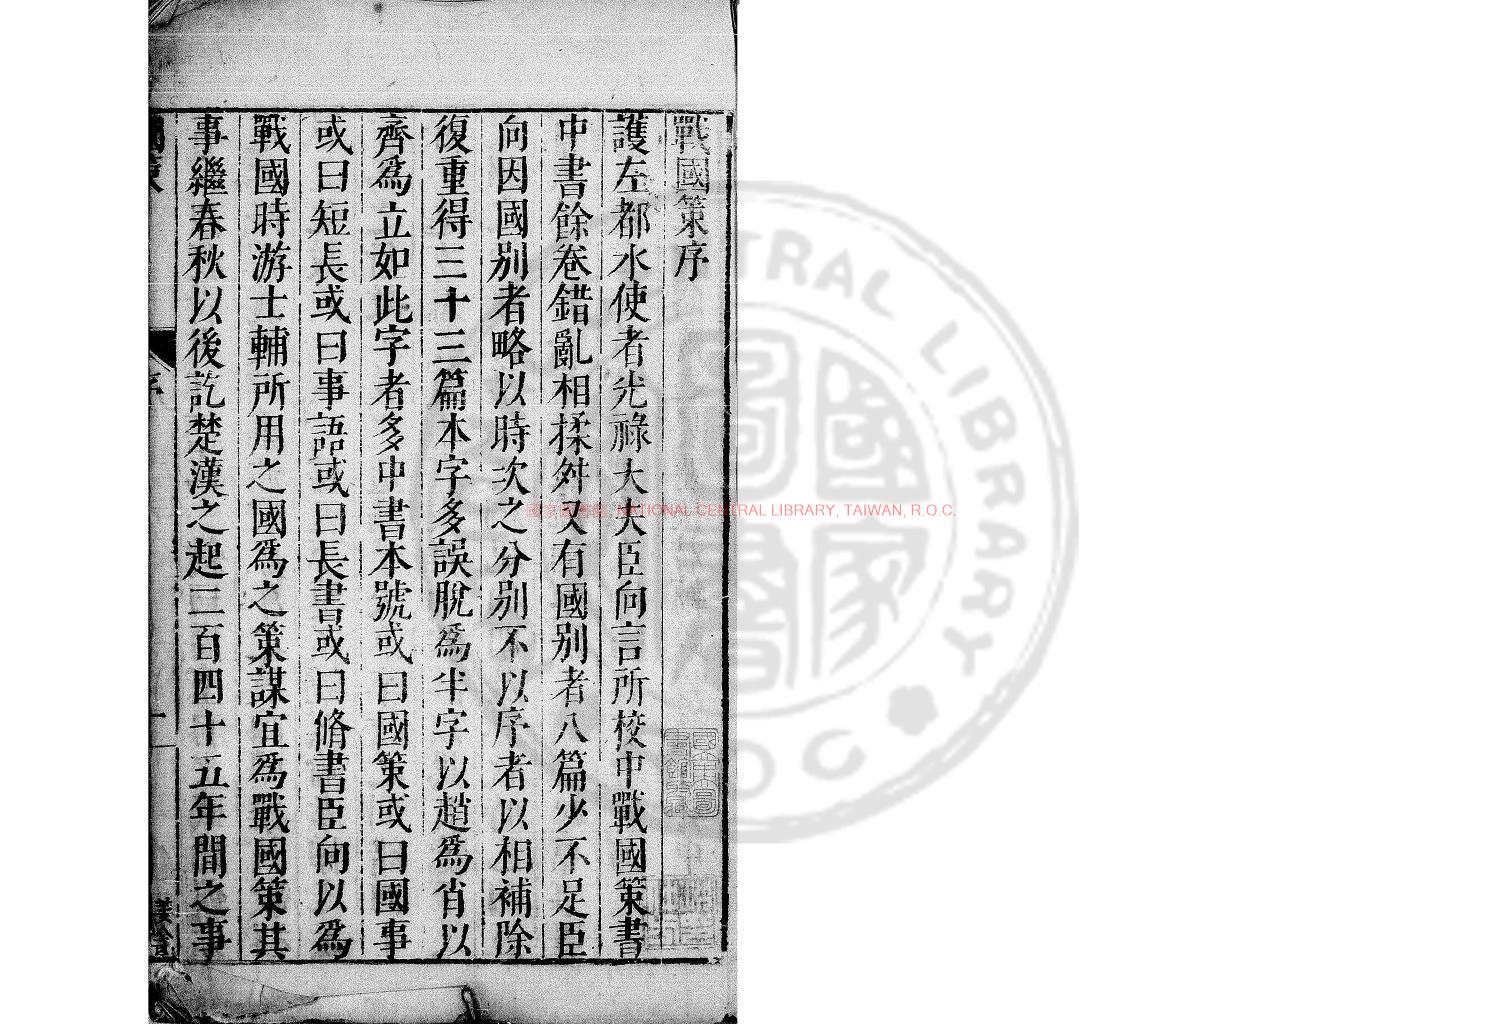 戰國策序
護左都水使者光祿大夫臣向言所校中戰國策書
中書餘卷錯亂相揉舛又有國別者八篇少不足臣
向因國別者略以時次之分別不以序者以相補除
復重得三十三篇本字多誤脫爲半字以趙爲肖以
齊爲立如此字者多中書本號或曰國策或曰國事
或曰短長或曰事語或曰長書或曰脩書臣向以爲
戰國時游士輔所用之國爲之策謀宜爲戰國策其
事繼春秋以後訖楚漢之起二百四十五年間之事
國策
序
一
NATIONAL CENTRAL LIBRARY, TAIWAN, R.O.C.